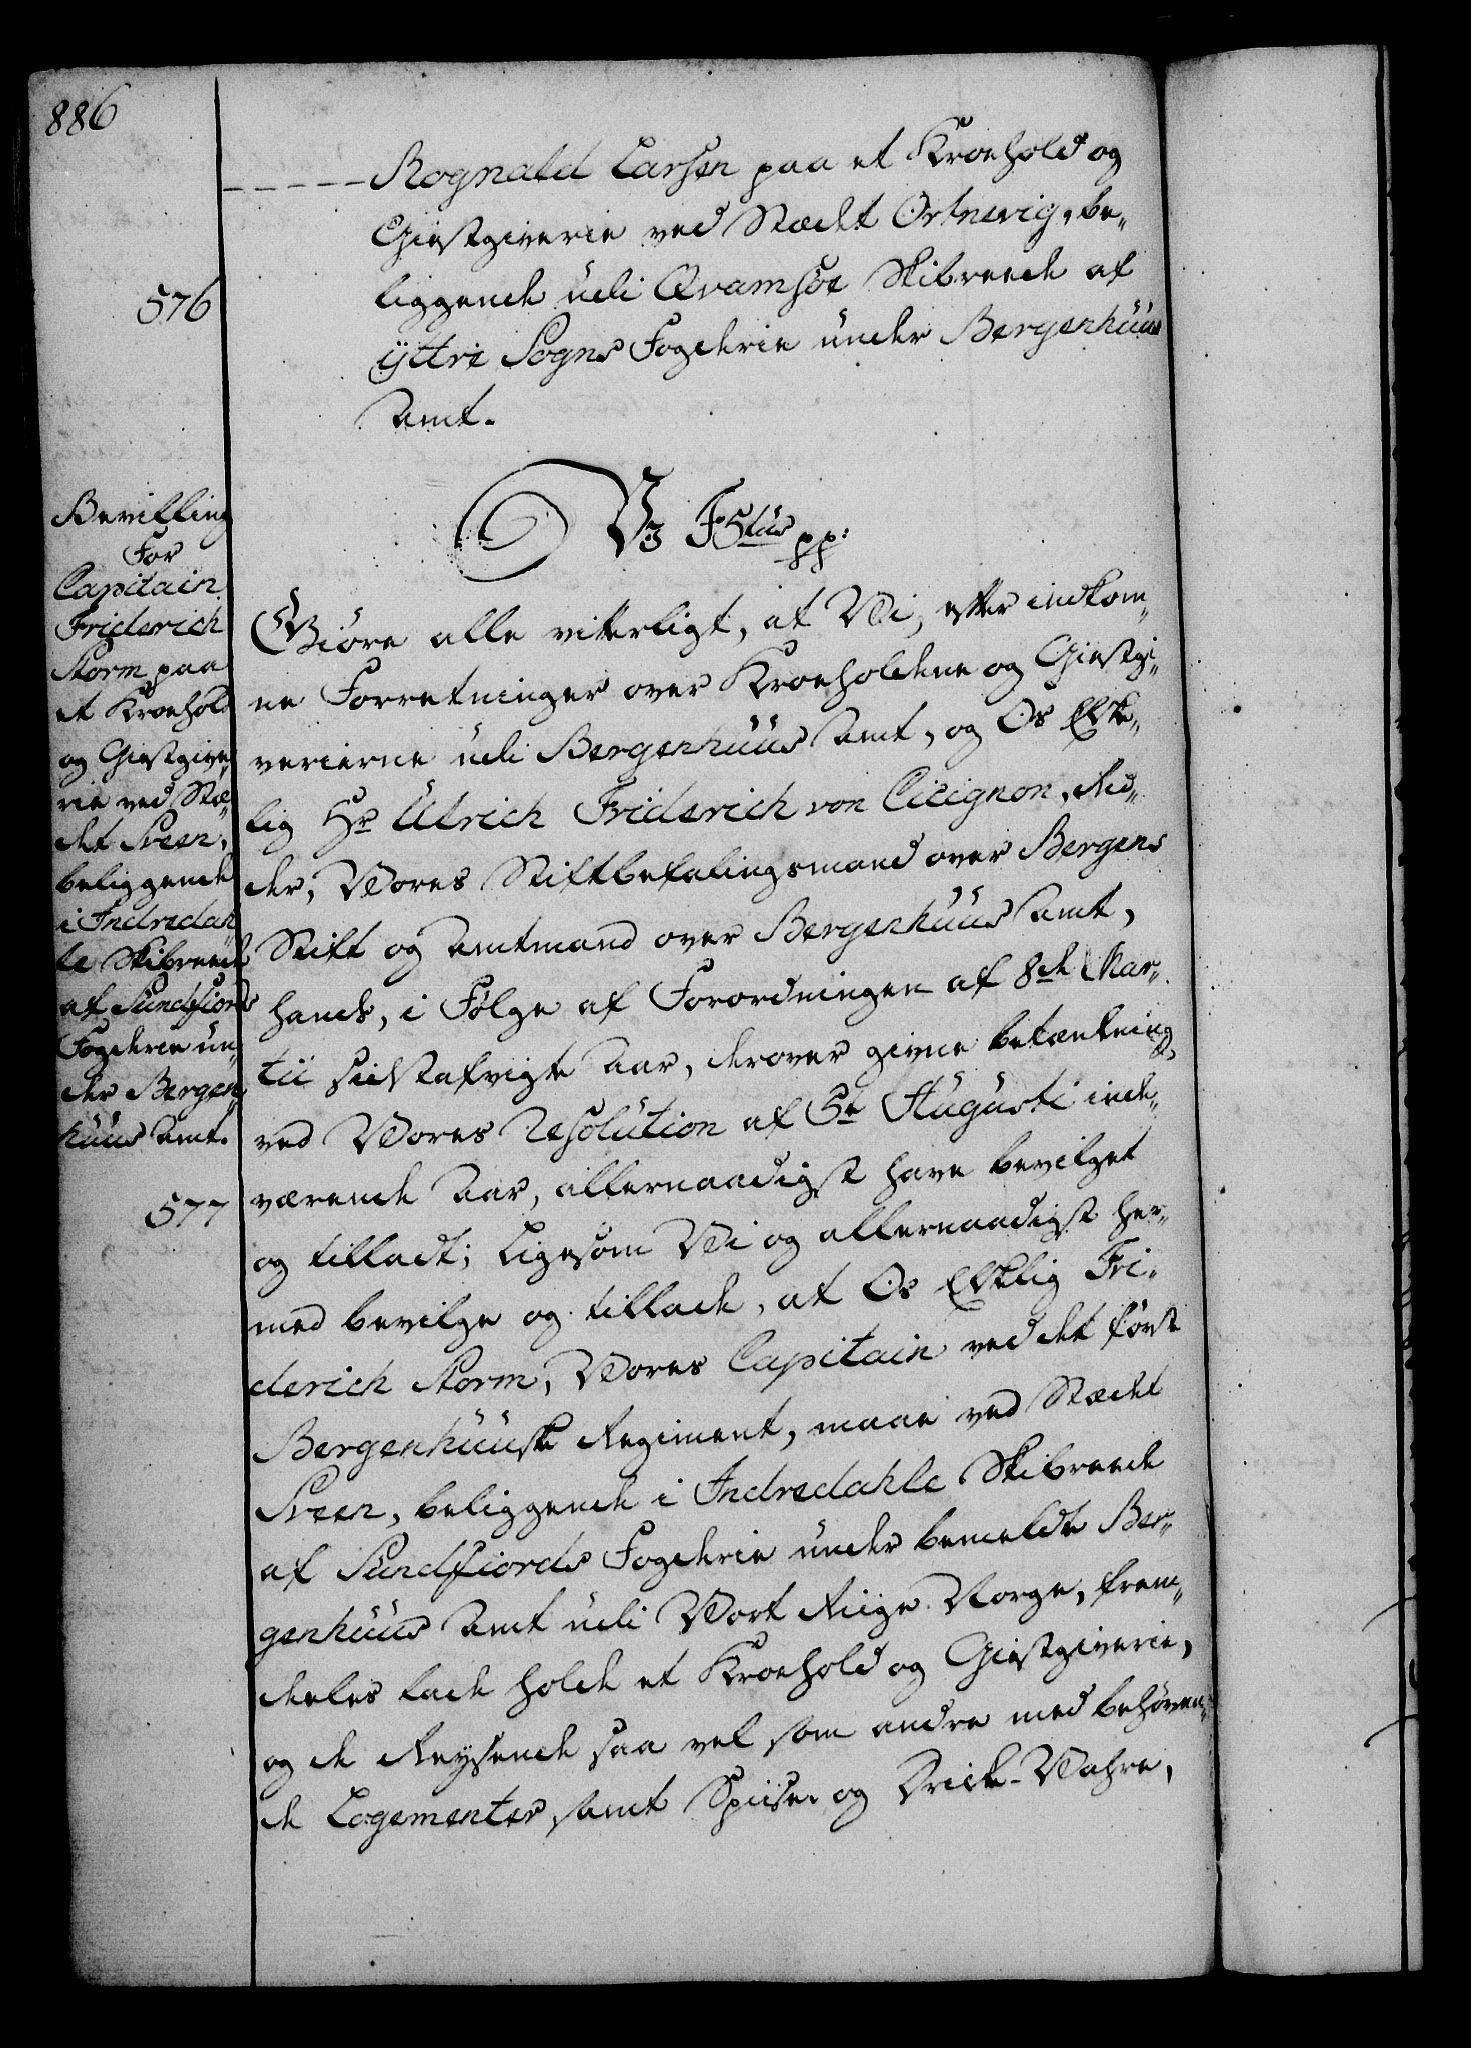 886
Rognald Larsen paa et Kroehold og
Giestgiverie ved Stædet Ortnevig, be-
liggende udi Qvamsøe Skibreede af
576
Yttre Sogns Fogderie under Bergenhuus
Amt.
Bevilling
For
Capitain
Friderich
Storm paa
et Kroehold
og Giestgive-
rie ved Stæ-
det Sveen,
beliggende
i Indredah-
le Skibreede
af Sundfiords
Fogderie un-
der Bergen-
huus Amt.
577
Vj F 5tus pp:
Giøre alle vitterligt, at Vi, efter indkom-
ne Forretninger over Kroeholdene og Giestgi-
verierne udi Bergenhuus Amt, og Os Elske-
lig Hr Ulrich Friderich von Cicignon, Rid-
der, Vores Stiftbefalingsmand over Bergens
Stift og Amtmand over Bergenhuus Amt,
hands, i Følge af Forordningen af 8de Mar-
tii sidstafvigte Aar, derover givne betænkning,
ved Vores Resolution af 5te Augusti inde-
værende Aar, allernaadigst have bevilget
og tilladt; Ligesom Vi og allernaadigst her-
med bevilge og tillade, at Os Elskelig Fri-
derich Storm, Vores Capitain ved det først
Bergenhuuske Regiment, maae ved Stædet
Sveen, beliggende i Indredahle Skibreede
af Sundfiords Fogderie under bemeldte Ber-
genhuus Amt udi Vort Riige Norge, frem-
deles lade holde et Kroehold og Giestgiverie,
og de Reysende saa vel som andre med behøven-
de Logementer samt Spiise- og Drikke-Vahre,